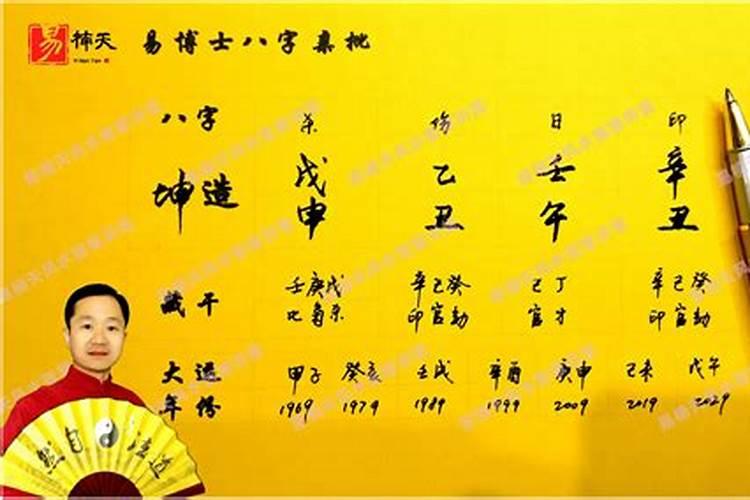 易 楠天 易博士八字集批
Yi Nan Tian
八字 杀 伤 日 印
坤造 戊 乙 壬 辛
申 丑 午 丑
藏干 壬庚戊 辛己癸 己丁 辛己癸
比枭杀 印官劫 官才 印官劫
大运 甲子 癸亥 壬戌 辛酉 庚申 己未 戊午
年份 1969 1979 1989 1999 2009 2019 2029
然自法道